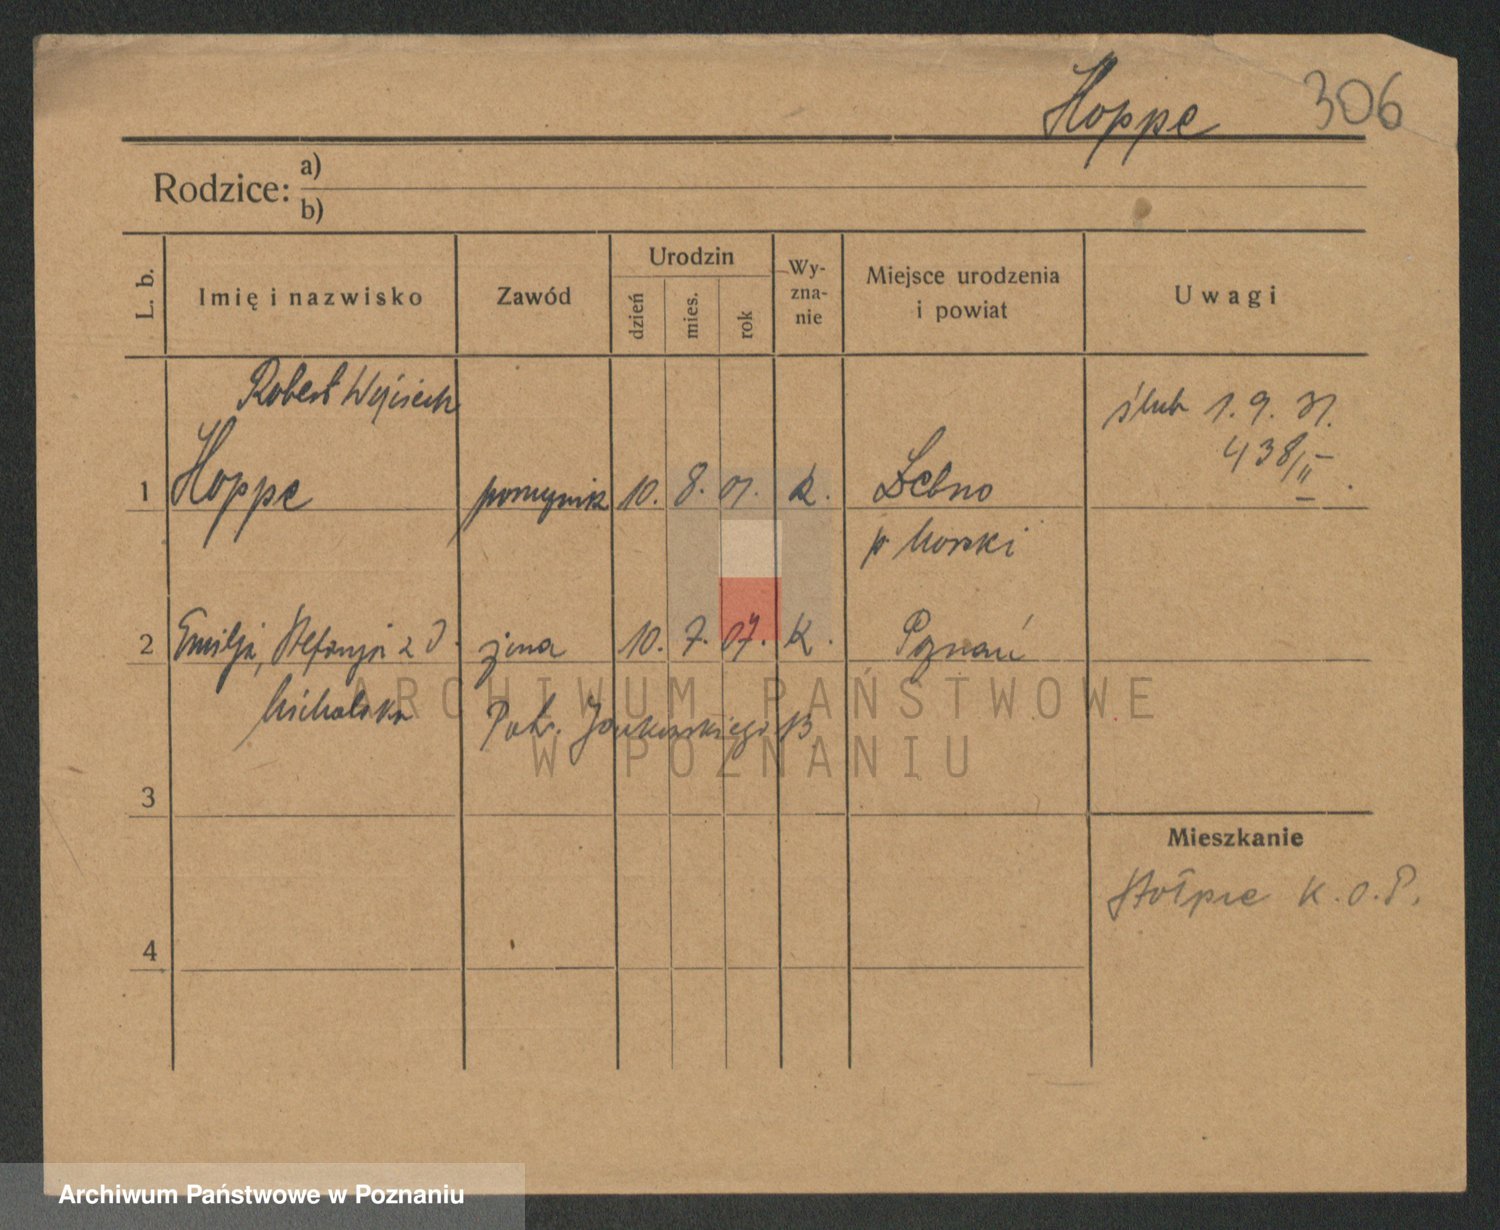 Hoppe 306
Rodzice: a)
b)
L. b. Imię i nazwisko Zawód Urodzin dzień mies. rok Wy-zna-nie Miejsce urodzenia i powiat Uwagi
Robert Wojciech
ślub 1. 9. 31.
438/II.
1 Hoppe 10. 8. 01. K. Debno
p morski
2 Emilja, Stefanja z d. żona 10. 7. 07. K. Poznań
Michalska Jankowskiego 13
3
Mieszkanie
Stołpce K.O.P.
4
ARCHIWUM PAŃSTWOWE
W POZNANIU
Archiwum Państwowe w Poznaniu